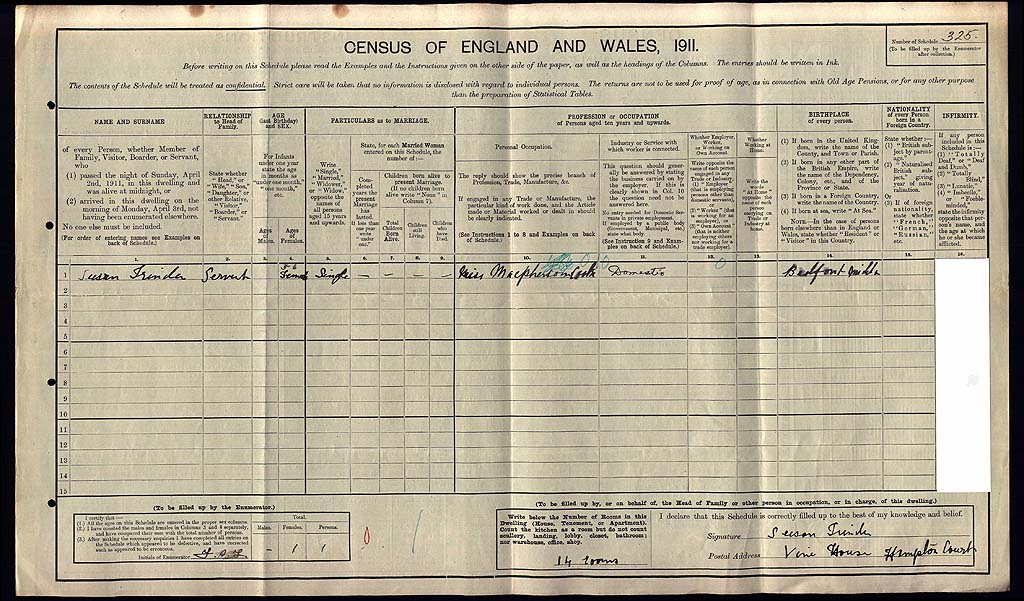 Number of Schedule 325
(To be filled up by the Enumerator
after collection.)
CENSUS OF ENGLAND AND WALES, 1911.
Before writing on this Schedule please read the Examples and the Instructions given on the other side of the paper, as well as the headings of the Columns. The entries should be written in Ink.
The contents of the Schedule will be treated as confidential. Strict care will be taken that no information is disclosed with regard to individual persons. The returns are not to be used for proof of age, as in connection with Old Age Pensions, or for any other purpose
than the preparation of Statistical Tables.
NAME AND SURNAME
of every Person, whether Member of
Family, Visitor, Boarder, or Servant,
who
(1) passed the night of Sunday, April
2nd, 1911, in this dwelling and
was alive at midnight, or
(2) arrived in this dwelling on the
morning of Monday, April 3rd, not
having been enumerated elsewhere.
No one else must be included.
(For order of entering names see Examples on
back of Schedule.)
RELATIONSHIP
to Head of
Family.
State whether
"Head," or
"Wife," "Son,"
"Daughter," or
other Relative,
"Visitor,"
"Boarder," or
"Servant."
AGE
(last Birthday)
and SEX.
For Infants
under one year
state the age
in months as
"under one month,"
"one month,"
etc.
Ages
of
Males.
Ages
of
Females.
PARTICULARS as to MARRIAGE.
Write
"Single,"
"Married,"
"Widower,"
or "Widow,"
opposite the
names of
all persons
aged 15 years
and upwards.
State, for each Married Woman
entered on this Schedule, the
number of :—
Com-
pleted
years the
present
Marriage
has
lasted.
If less than
one year
write
"under
one."
Children born alive to
present Marriage.
(If no children born
alive write "None" in
Column 7).
Total
Children
Born
Alive.
Children
still
Living.
Children
who
have
Died.
PROFESSION or OCCUPATION
of Persons aged ten years and upwards.
Personal Occupation.
The reply should show the precise branch of
Profession, Trade, Manufacture, &c.
If engaged in any Trade or Manufacture, the
particular kind of work done, and the Article
made or Material worked or dealt in should
be clearly indicated.
(See Instructions 1 to 8 and Examples on back
of Schedule.)
Industry or Service
with which worker is connected.
This question should gener-
ally be answered by stating
the business carried on by
the employer. If this is
clearly shown in Col. 10
the question need not be
answered here.
No entry needed for Domestic Ser-
vants in private employment.
If employed by a public body
(Government, Municipal, etc.)
state what body.
(See Instruction 9 and Exam-
ples on back of Schedule.)
Whether Employer,
Worker,
or Working on
Own Account.
Whether
Working at
Home.
BIRTHPLACE
of every person.
(1) If born in the United King-
dom, write the name of the
County, and Town or Parish.
(2) If born in any other part of
the British Empire, write
the name of the Dependency,
Colony, etc., and of the
Province or State.
(3) If born in a Foreign Country,
write the name of the Country.
(4) If born at sea, write "At Sea."
NOTE.—In the case of persons
born elsewhere than in England or
Wales, state whether "Resident" or
"Visitor" in this Country.
NATIONALITY
of every Person
born in a
Foreign Country.
INFIRMITY.
1. 2. 3. 4. 5. 6. 7. 8. 9. 10. 11. 12. 13. 14. 15. 16.
1 Susan Trinder Servant Single — — — — Miss Macpherson Cook Domestic
2
3
4
5
6
7
8
9
10
11
12
13
14
15
(To be filled up by the Enumerator.)
I certify that:—
(1.) All the ages on this Schedule are entered in the proper sex columns.
(2.) I have counted the males and females in Columns 3 and 4 separately,
and have compared their sum with the total number of persons.
(3.) After making the necessary enquiries I have completed all entries on
the Schedule which appeared to be defective, and have corrected
such as appeared to be erroneous.
Initials of Enumerator
Total.
Males. Females. Persons.
- 1 1
(To be filled up by, or on behalf of, the Head of Family or other person in occupation, or in charge, of this dwelling.)
Write below the Number of Rooms in this
Dwelling (House, Tenement, or Apartment).
Count the kitchen as a room but do not count
scullery, landing, lobby, closet, bathroom;
nor warehouse, office, shop.
14 rooms
I declare that this Schedule is correctly filled up to the best of my knowledge and belief.
Signature Susan Trinder
Postal Address Vine House Hampton Court